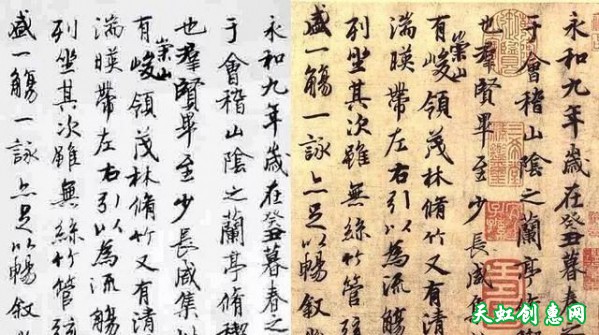 永和九年歲在癸丑暮春之
于會稽山陰之蘭亭脩稧
也羣賢畢至少長咸集
有崇山峻領茂林脩竹又有清
湍暎帶左右引以為流觴
列坐其次雖無絲竹管弦
盛一觴一詠亦足以暢叙
永和九年歲在癸丑暮春之
于會稽山陰之蘭亭
也羣賢畢至少長咸集
有崇山峻領茂林脩竹又有清
湍暎帶左右引以為流觴
列坐其次雖無絲竹管弦
盛一觴一詠亦足以暢叙
天虹创惠网